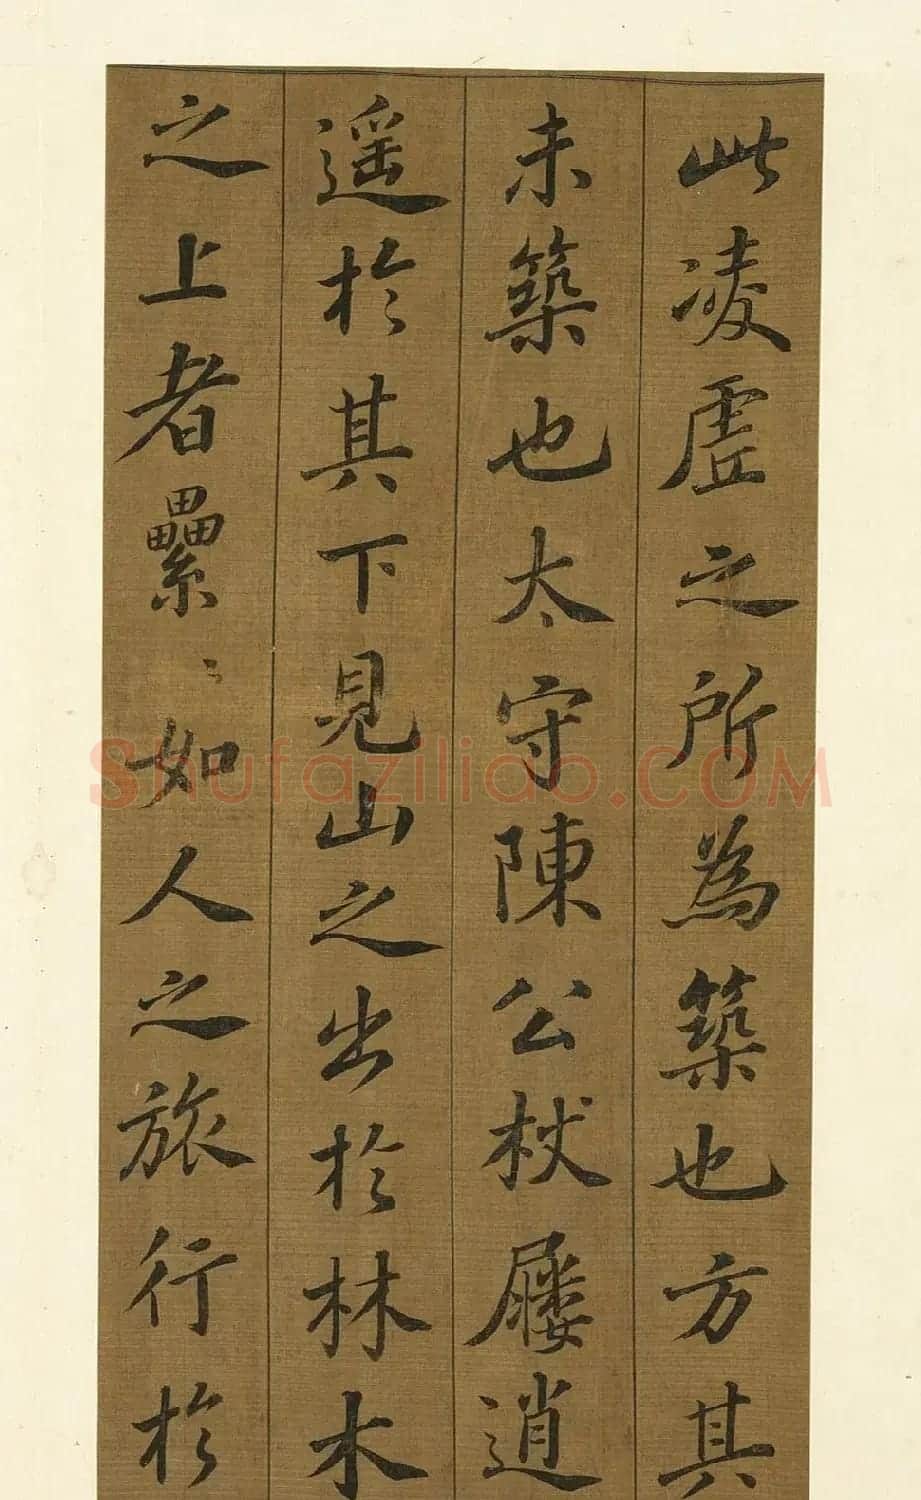 此凌虚之所為築也方其
未築也太守陳公杖屨逍
遥於其下見山之出於林木
之上者纍〻如人之旅行於
Shufaziliao.COM